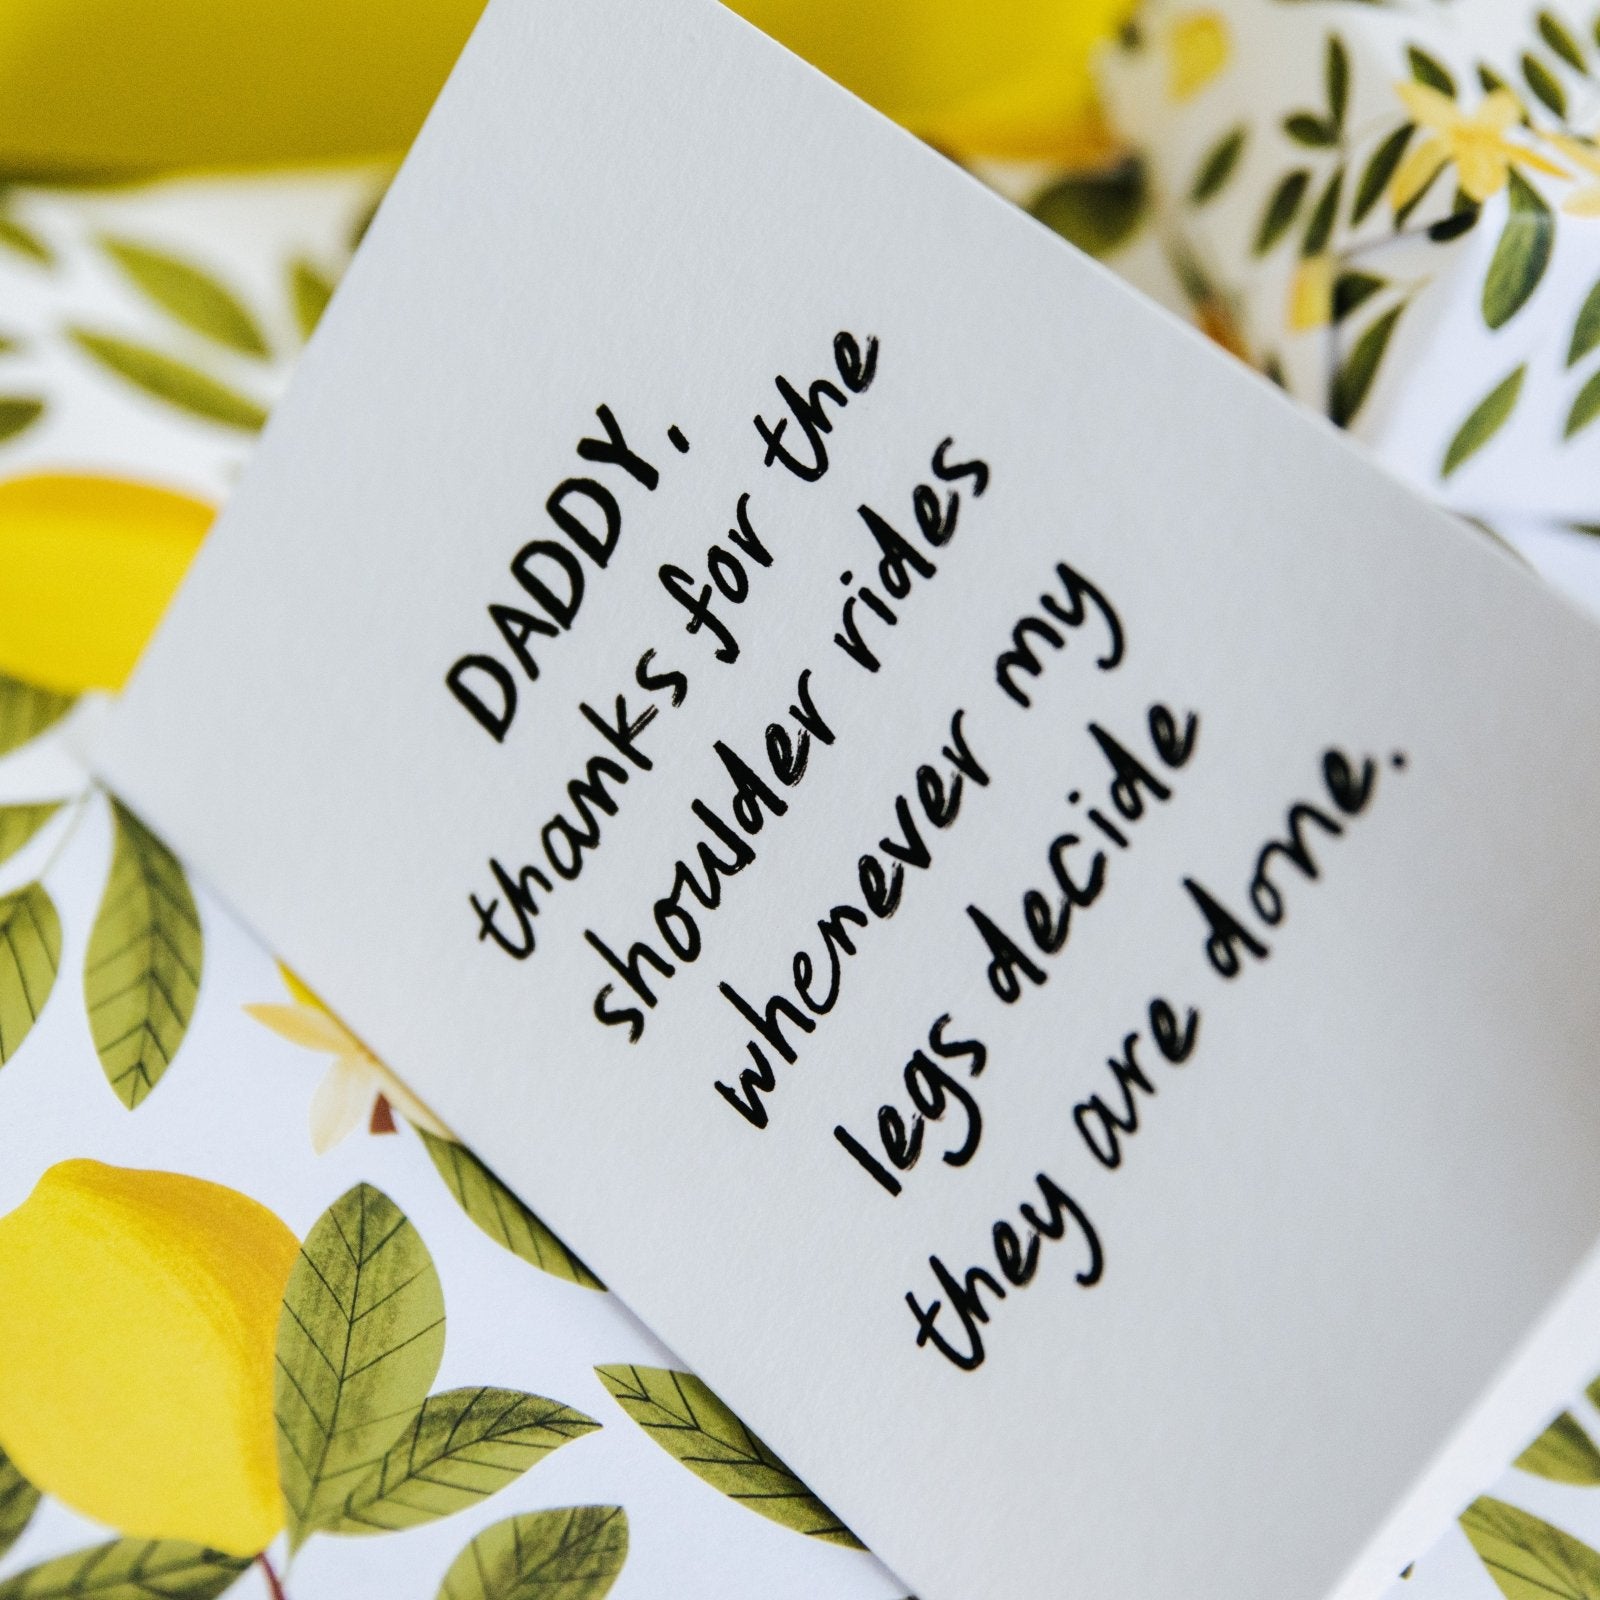 DADDY,
thanks for the
shoulder rides
whenever my
legs decide
they are done.